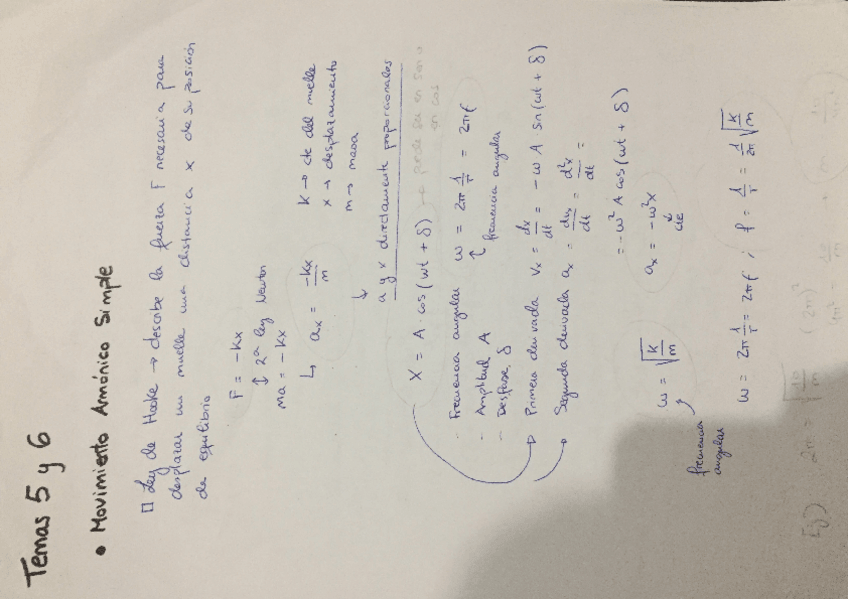 Temas 5 y 6
• Movimiento Armónico Simple
□ Ley de Hooke → describe la fuerza F necesaria para
desplazar un muelle una distancia x de su posición
de equilibrio
F = -Kx
↕ 2ª ley Newton
ma = -Kx
↳ aₓ = -Kx/m
K → cte del muelle
x → desplazamiento
m → masa
↓
a y x directamente proporcionales
X = A cos(wt + δ) → puede ser en sen o
en cos
- Frecuencia angular w = 2π 1/T = 2πf
↑ frecuencia angular
- Amplitud A
- Desfase, δ
→ Primera derivada vₓ = dx/dt = -wA sn(wt + δ)
→ Segunda derivada aₓ = dvₓ/dt = d²x/dt =
= -w² A cos(wt + δ)
aₓ = -w²x
↓
cte
w = √(K/m)
frecuencia
angular
w = 2π 1/T = 2πf ; f = 1/T = 1/2π √(K/m)